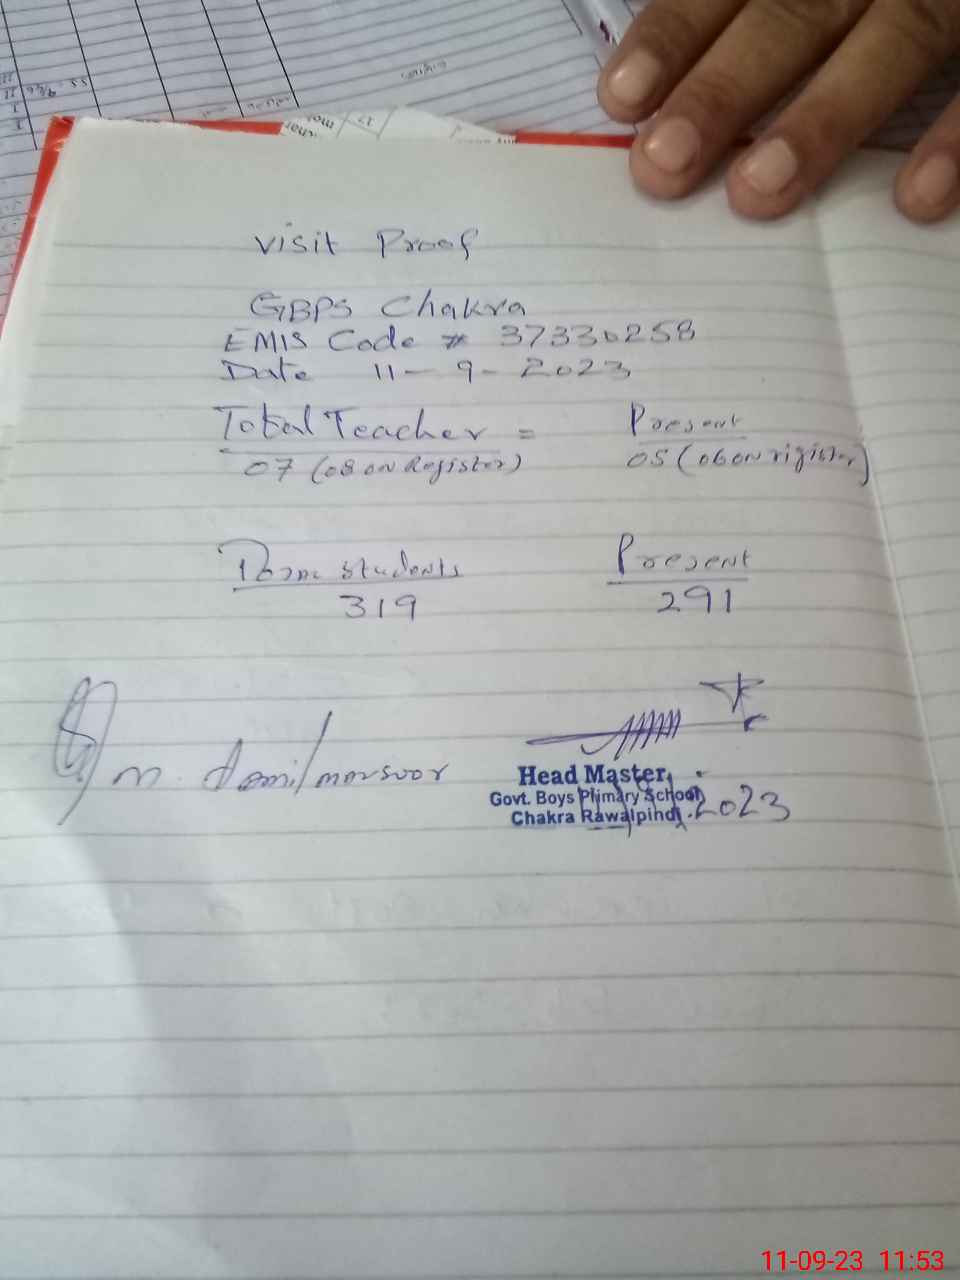 Visit Proof
GBPS Chakra
EMIS Code # 37330258
Date 11-9-2023
Total Teacher = Present
07 (08 on Register) 05 (06 on rigister)
students Present
319 291
m.
Head Master
Govt. Boys Primary School
Chakra Rawalpindi
.2023
11-09-23 11:53